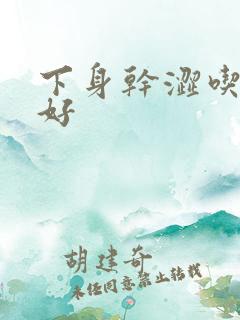 下身幹澀喫
好
胡建奇
未经同意禁止转载